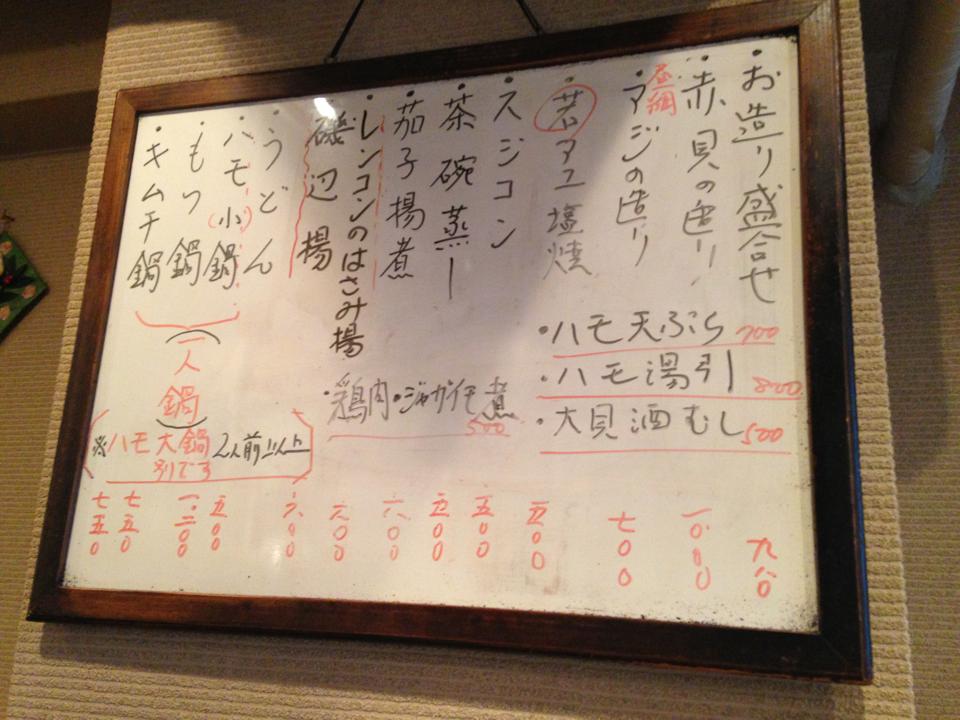 ・お造り盛合せ 九八〇
・赤貝の造り 一.〇〇〇
昼網
・アジの造り 七〇〇
・ハモ天ぷら 700
・ハモ湯引 800
・大貝酒むし 500
・若アユ塩焼 五〇〇
・スジコン 五〇〇
・茶碗蒸し 五〇〇
・茄子揚煮 六〇〇
・鶏肉・ジャガイモ煮 500
・レンコンのはさみ揚 六〇〇
・磯辺揚 六〇〇
・うどん 五〇〇
・ハモ(小)鍋 一.二〇〇
・もつ鍋 七五〇
・キムチ鍋 七五〇
一人鍋
※ハモ大鍋 2人前以上
別です